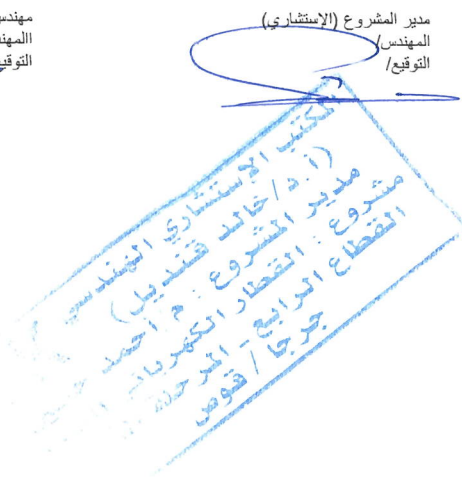 مدير المشروع (الإستشاري)
المهندس/
التوقيع/
مهندس
االمهند
التوقيع
المكتب الإستشاري الهندسي
(أ.د/خالد قنديل)
مدير المشروع : م أحمد
مشروع : القطار الكهربائي
القطاع الرابع - المرحلة
جرجا / قوص